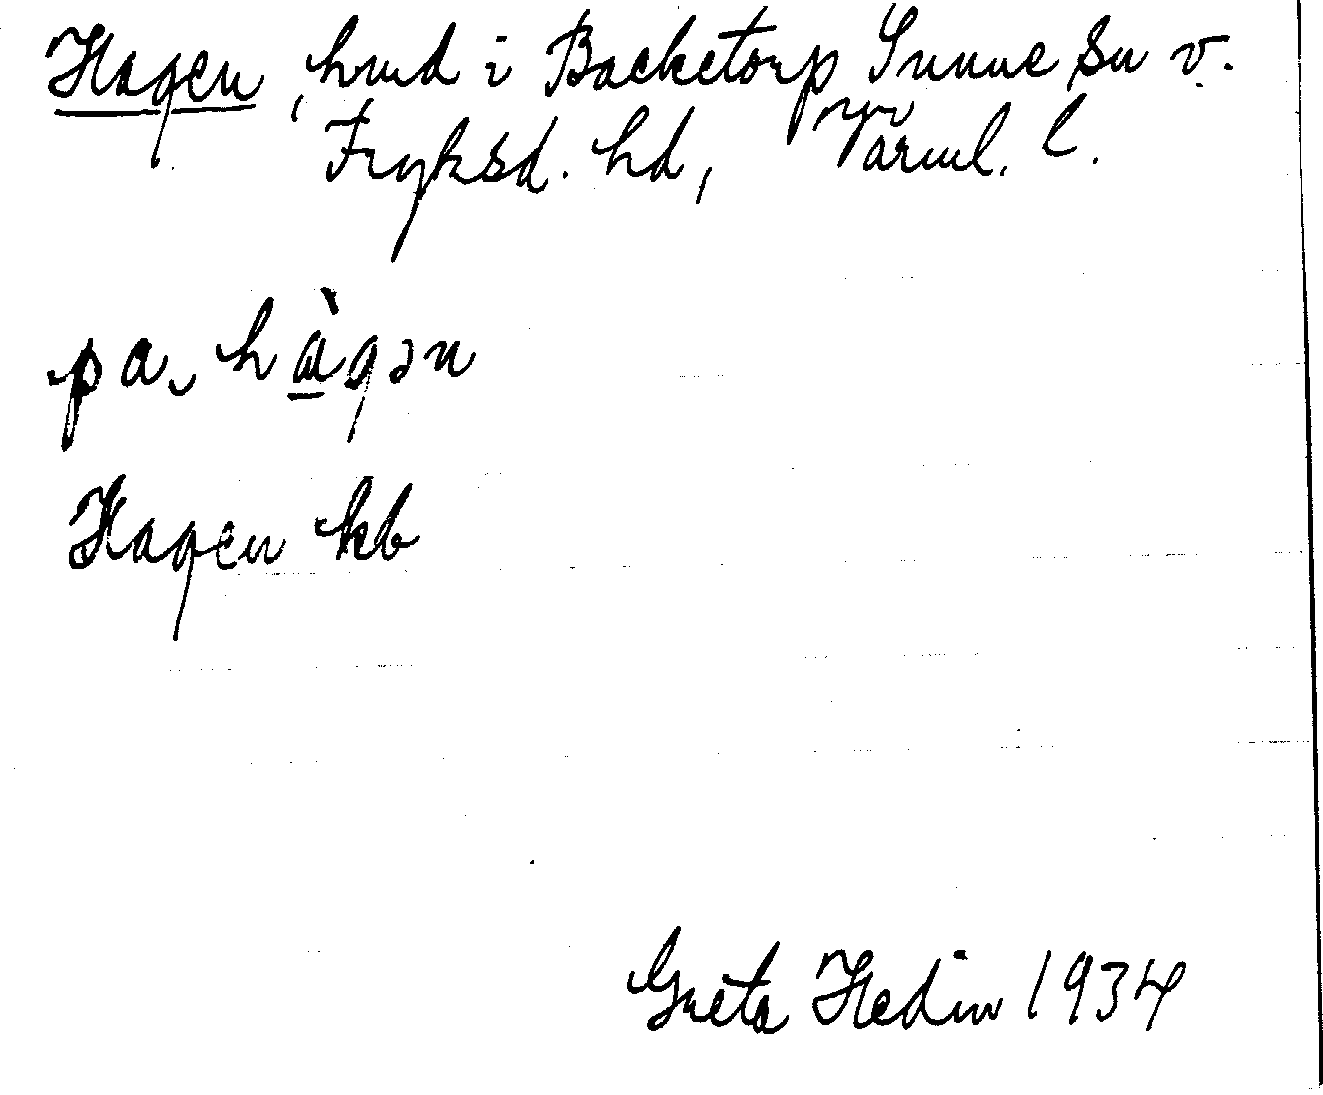 Hagen, hmd i Backetorp Sunne sn v.
Fryksd. hd, Värml. l.
pa hàgən
Hagen kb
Greta Hedin 1934